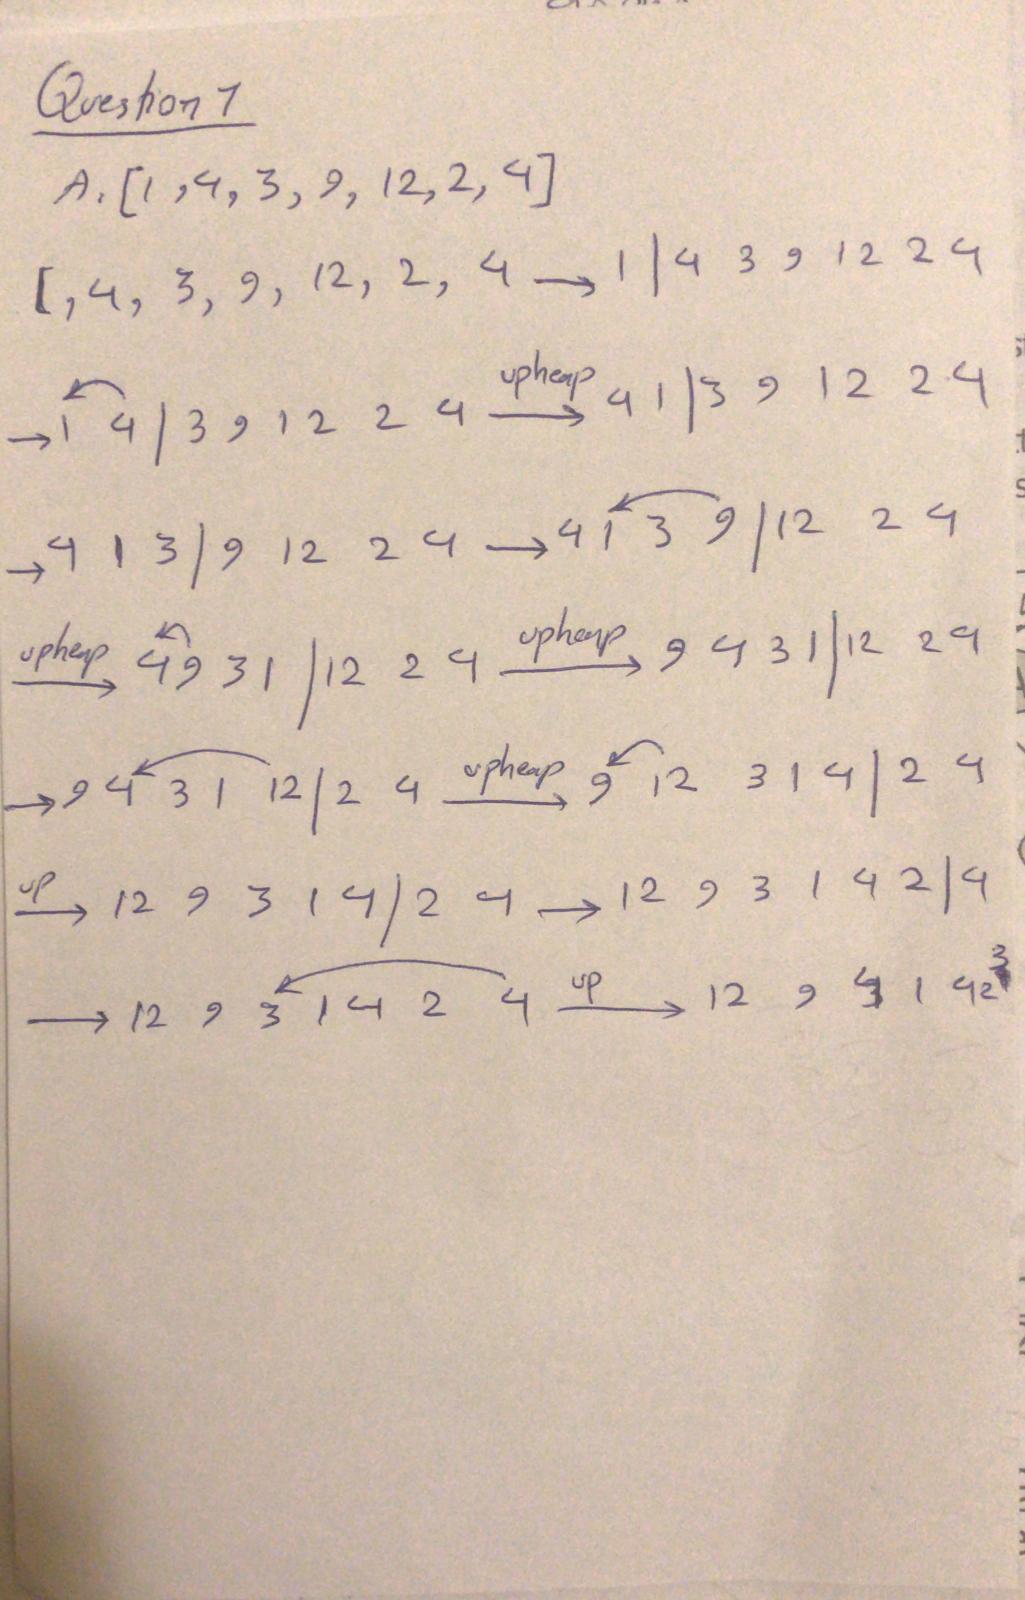 Question 1
A. [1, 4, 3, 9, 12, 2, 4]
[, 4, 3, 9, 12, 2, 4 → 1 | 4 3 9 12 2 4
→ 1 4 | 3 9 12 2 4 upheap → 4 1 | 3 9 12 2 4
→ 4 1 3 | 9 12 2 4 → 4 1 3 9 | 12 2 4
upheap → 4 9 3 1 | 12 2 4 upheap → 9 4 3 1 | 12 2 4
→ 9 4 3 1 12 | 2 4 upheap → 9 12 3 1 4 | 2 4
up → 12 9 3 1 4 | 2 4 → 12 9 3 1 4 2 | 4
→ 12 9 3 1 4 2 4 up → 12 9 4 1 4 2 3